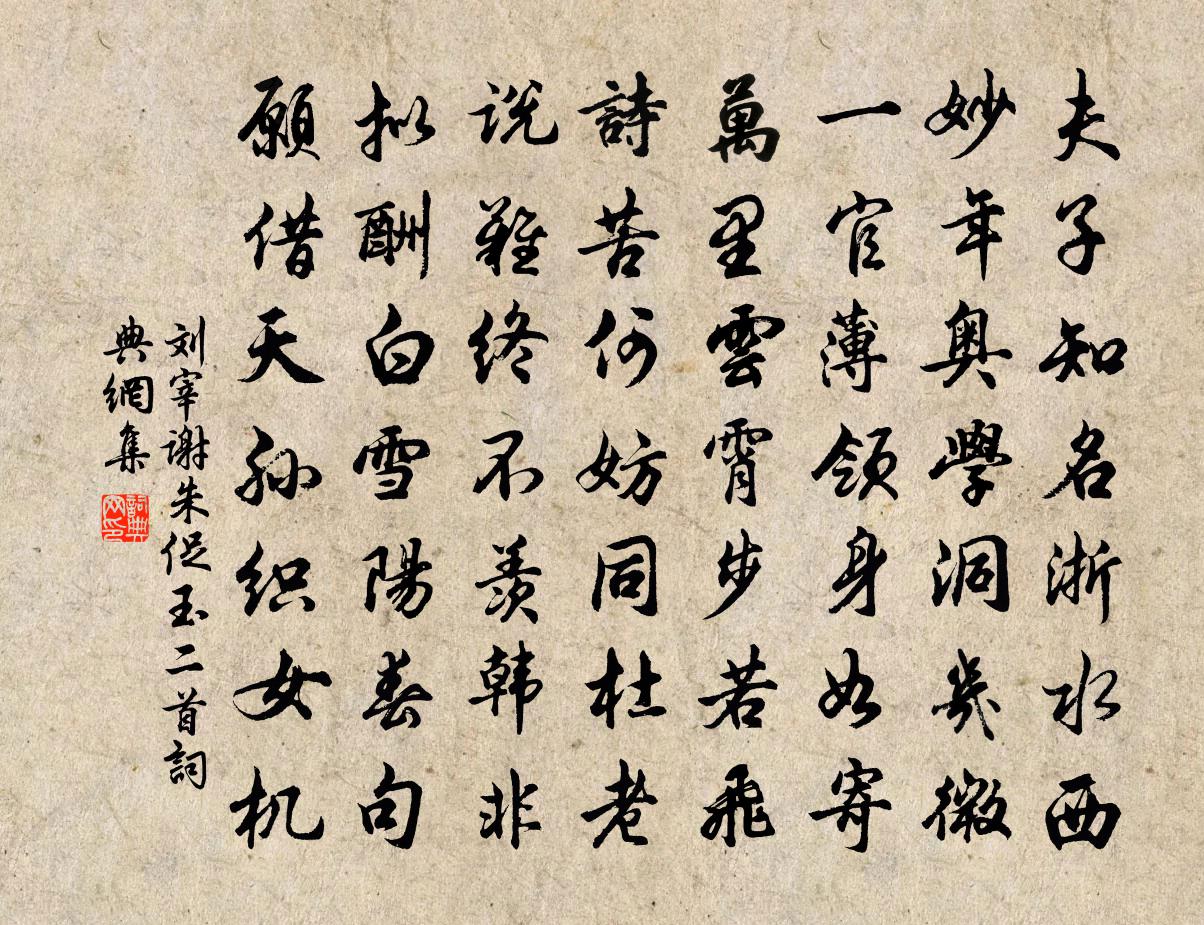 夫子知名浙水西
妙年奥學洞幾微
一官薄領身如寄
萬里雲霄步若飛
詩苦何妨同杜老
说難终不羡韩非
拟酬白雪陽春句
願借天孙织女机
刘宰谢朱促玉二首詞
典網集
詞典
网印